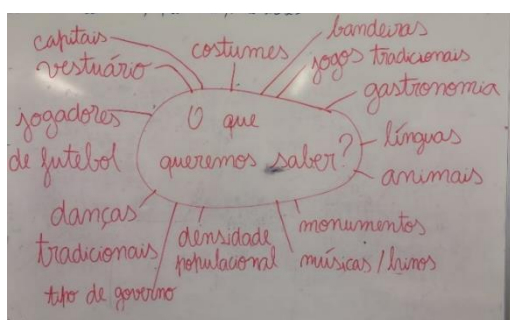 O que
queremos saber?
capitais
vestuário
costumes
bandeiras
jogos tradicionais
gastronomia
línguas
animais
monumentos
músicas / hinos
densidade
populacional
tipo de governo
danças
tradicionais
jogadores
de futebol